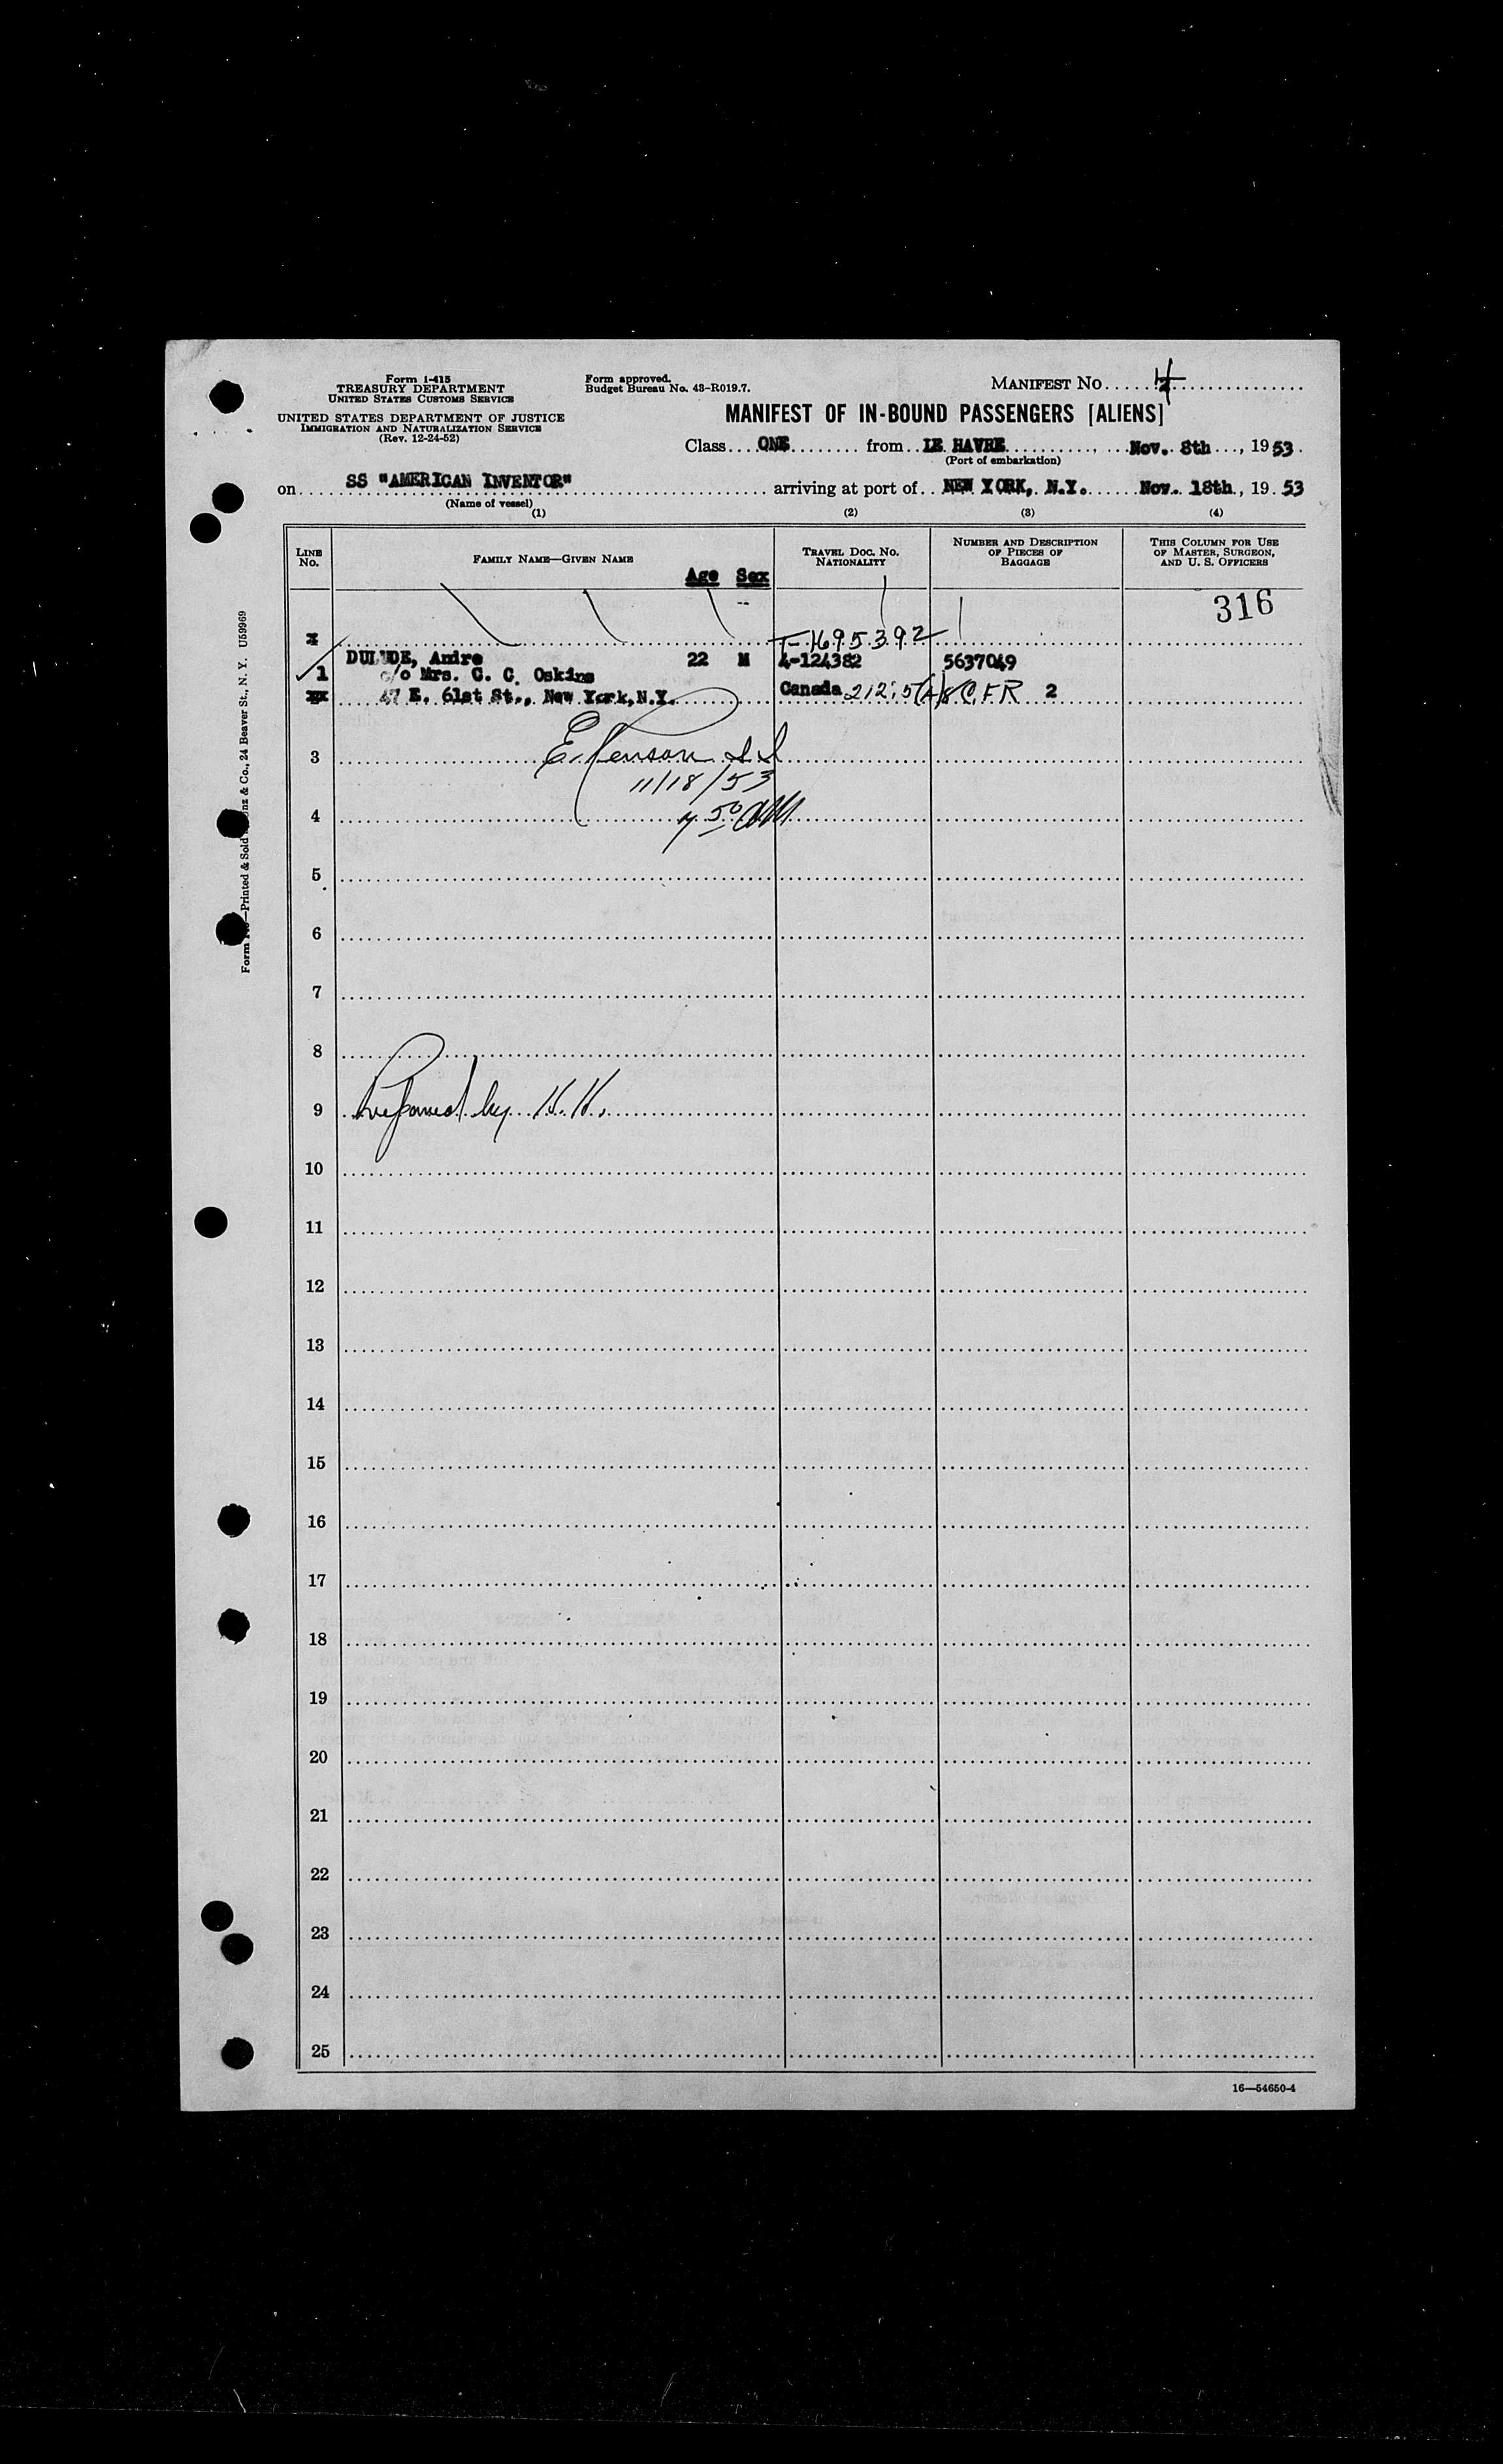 Form I-415
TREASURY DEPARTMENT
UNITED STATES CUSTOMS SERVICE
UNITED STATES DEPARTMENT OF JUSTICE
IMMIGRATION AND NATURALIZATION SERVICE
(Rev. 12-24-52)
Form approved.
Budget Bureau No. 43-R019.7.
MANIFEST NO. 4
MANIFEST OF IN-BOUND PASSENGERS [ALIENS]
Class ONE from LE HAVRE, Nov. 8th, 1953.
(Port of embarkation)
on SS "AMERICAN INVENTOR" arriving at port of NEW YORK, N.Y. Nov. 18th, 19 53
(Name of vessel)
(1) (2) (3) (4)
LINE No.
FAMILY NAME—GIVEN NAME Age Sex
TRAVEL DOC. NO. NATIONALITY
NUMBER AND DESCRIPTION OF PIECES OF BAGGAGE
THIS COLUMN FOR USE OF MASTER, SURGEON, AND U. S. OFFICERS
316
x T-1695392
DULUDE, Andre 22 M 4-124382 5637049
1 c/o Mrs. C. C. Oskins
xx 47 E. 61st St., New York, N.Y. Canada 212.5(A) 8 C.F.R 2
3
11/18/53
4 50 AM
5
6
7
8
9 Prepared by K.K.
10
11
12
13
14
15
16
17
18
19
20
21
22
23
24
25
16—54650-4
Printed & Sold & Co., 24 Beaver St., N. Y. U59969